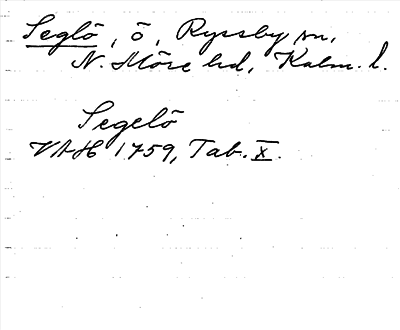 Seglö, ö, Ryssby sn,
N. Möre hd, Kalm. l.
Segelö
VAH 1759, Tab. X.